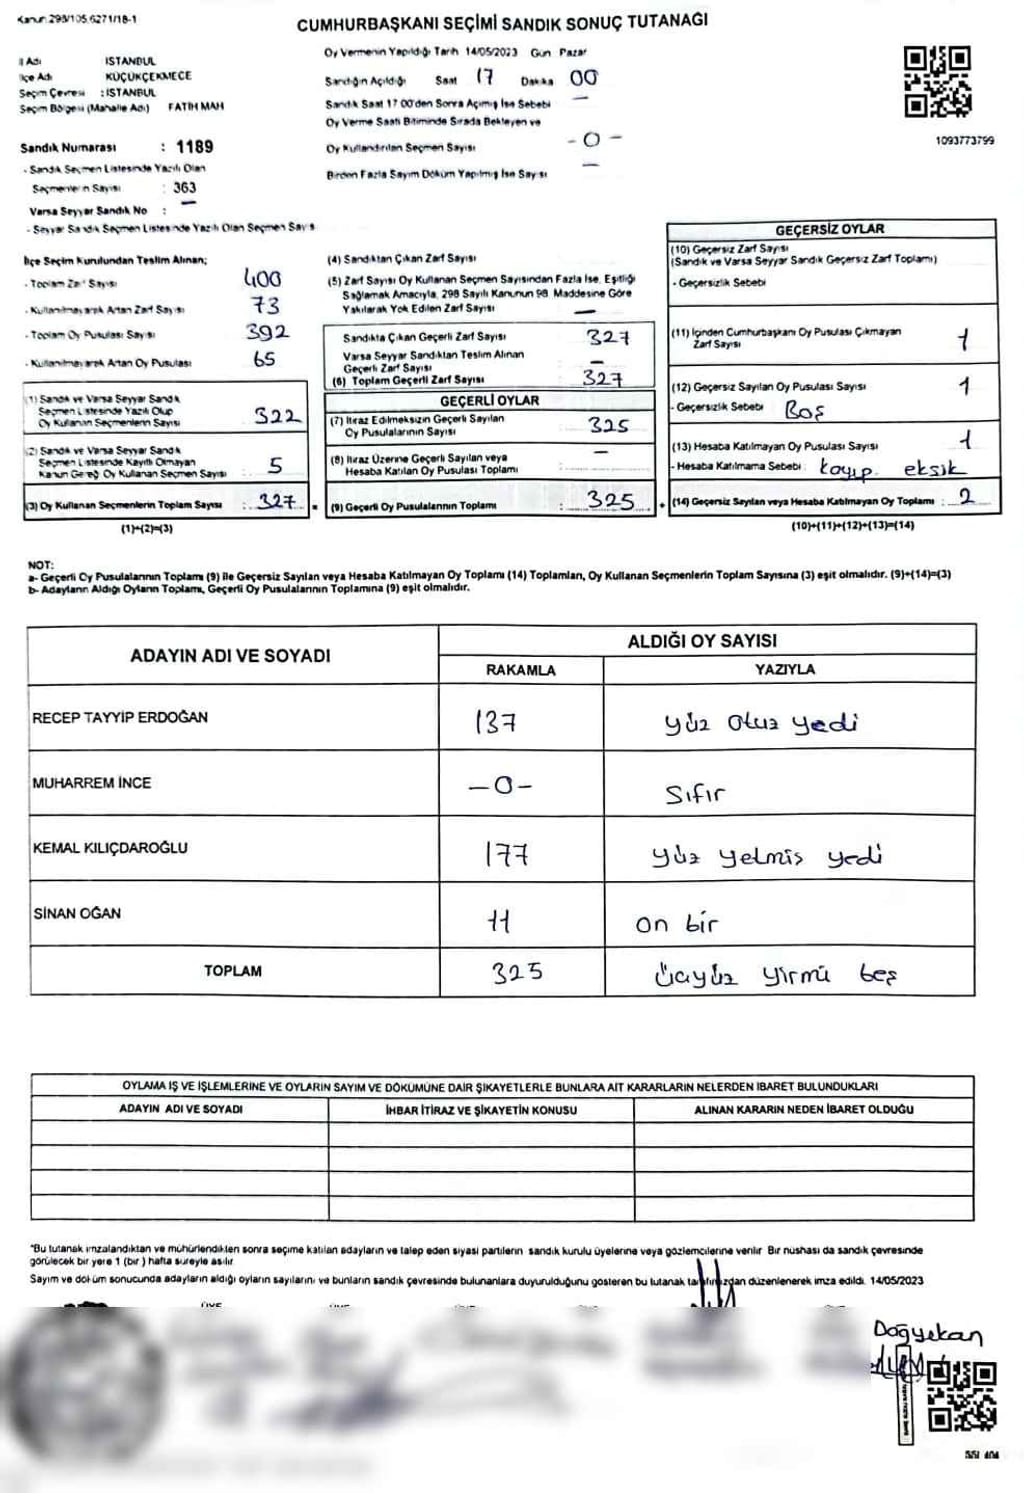 Kanun 298/105,6271/18-1
CUMHURBAŞKANI SEÇİMİ SANDIK SONUÇ TUTANAĞI
İl Adı İSTANBUL
İlçe Adı KÜÇÜKÇEKMECE
Seçim Çevresi : İSTANBUL
Seçim Bölgesi (Mahalle Adı) FATİH MAH
Sandık Numarası : 1189
- Sandık Seçmen Listesinde Yazılı Olan
Seçmenlerin Sayısı : 363
Varsa Seyyar Sandık No : —
- Seyyar Sandık Seçmen Listesinde Yazılı Olan Seçmen Sayıs
Oy Vermenin Yapıldığı Tarih 14/05/2023 Gün Pazar
Sandığın Açıldığı Saat 17 Dakika 00
Sandık Saat 17 00'den Sonra Açımış İse Sebebi —
Oy Verme Saati Bitiminde Sırada Bekleyen ve
Oy Kullandırılan Seçmen Sayısı - 0 -
Birden Fazla Sayım Döküm Yapılmış İse Sayısı —
1093773799
İlçe Seçim Kurulundan Teslim Alınan;
- Toplam Zarf Sayısı 400
- Kullanılmayarak Artan Zarf Sayısı 73
- Toplam Oy Pusulası Sayısı 392
- Kullanılmayarak Artan Oy Pusulası 65
(1) Sandık ve Varsa Seyyar Sandık
Seçmen Listesinde Yazılı Olup
Oy Kullanan Seçmenlerin Sayısı 322
(2) Sandık ve Varsa Seyyar Sandık
Seçmen Listesinde Kayıtlı Olmayan
Kanun Gereği Oy Kullanan Seçmen Sayısı 5
(3) Oy Kullanan Seçmenlerin Toplam Sayısı : 327 =
(1)+(2)=(3)
(4) Sandıktan Çıkan Zarf Sayısı
(5) Zarf Sayısı Oy Kullanan Seçmen Sayısından Fazla İse, Eşitliği
Sağlamak Amacıyla, 298 Sayılı Kanunun 98. Maddesine Göre
Yakılarak Yok Edilen Zarf Sayısı —
Sandıkta Çıkan Geçerli Zarf Sayısı 327
Varsa Seyyar Sandıktan Teslim Alınan
Geçerli Zarf Sayısı —
(6) Toplam Geçerli Zarf Sayısı 327
GEÇERLİ OYLAR
(7) İtiraz Edilmeksizin Geçerli Sayılan
Oy Pusulalarının Sayısı 325
(8) İtiraz Üzerine Geçerli Sayılan veya
Hesaba Katılan Oy Pusulası Toplamı —
(9) Geçerli Oy Pusulalarının Toplamı : 325 +
GEÇERSİZ OYLAR
(10) Geçersiz Zarf Sayısı
(Sandık ve Varsa Seyyar Sandık Geçersiz Zarf Toplamı)
- Geçersizlik Sebebi
(11) İçinden Cumhurbaşkanı Oy Pusulası Çıkmayan
Zarf Sayısı 1
(12) Geçersiz Sayılan Oy Pusulası Sayısı 1
- Geçersizlik Sebebi Boş
(13) Hesaba Katılmayan Oy Pusulası Sayısı 1
- Hesaba Katılmama Sebebi : kayıp. eksik
(14) Geçersiz Sayılan veya Hesaba Katılmayan Oy Toplamı : 2
(10)+(11)+(12)+(13)=(14)
NOT:
a- Geçerli Oy Pusulalarının Toplamı (9) ile Geçersiz Sayılan veya Hesaba Katılmayan Oy Toplamı (14) Toplamları, Oy Kullanan Seçmenlerin Toplam Sayısına (3) eşit olmalıdır. (9)+(14)=(3)
b- Adayların Aldığı Oyların Toplamı, Geçerli Oy Pusulalarının Toplamına (9) eşit olmalıdır.
ADAYIN ADI VE SOYADI ALDIĞI OY SAYISI
RAKAMLA YAZIYLA
RECEP TAYYİP ERDOĞAN 137 Yüz otuz yedi
MUHARREM İNCE —0— Sıfır
KEMAL KILIÇDAROĞLU 177 Yüz yetmiş yedi
SİNAN OĞAN 11 On bir
TOPLAM 325 Üçyüz yirmi beş
OYLAMA İŞ VE İŞLEMLERİNE VE OYLARIN SAYIM VE DÖKÜMÜNE DAİR ŞİKAYETLERLE BUNLARA AİT KARARLARIN NELERDEN İBARET BULUNDUKLARI
ADAYIN ADI VE SOYADI İHBAR İTİRAZ VE ŞİKAYETİN KONUSU ALINAN KARARIN NEDEN İBARET OLDUĞU
*Bu tutanak imzalandıktan ve mühürlendikten sonra seçime katılan adayların ve talep eden siyasi partilerin sandık kurulu üyelerine veya gözlemcilerine verilir Bir nüshası da sandık çevresinde
görülecek bir yere 1 (bir) hafta süreyle asılır
Sayım ve döküm sonucunda adayların aldığı oyların sayılarını ve bunların sandık çevresinde bulunanlara duyurulduğunu gösteren bu tutanak tarafımızdan düzenlenerek imza edildi. 14/05/2023
Doğyekan